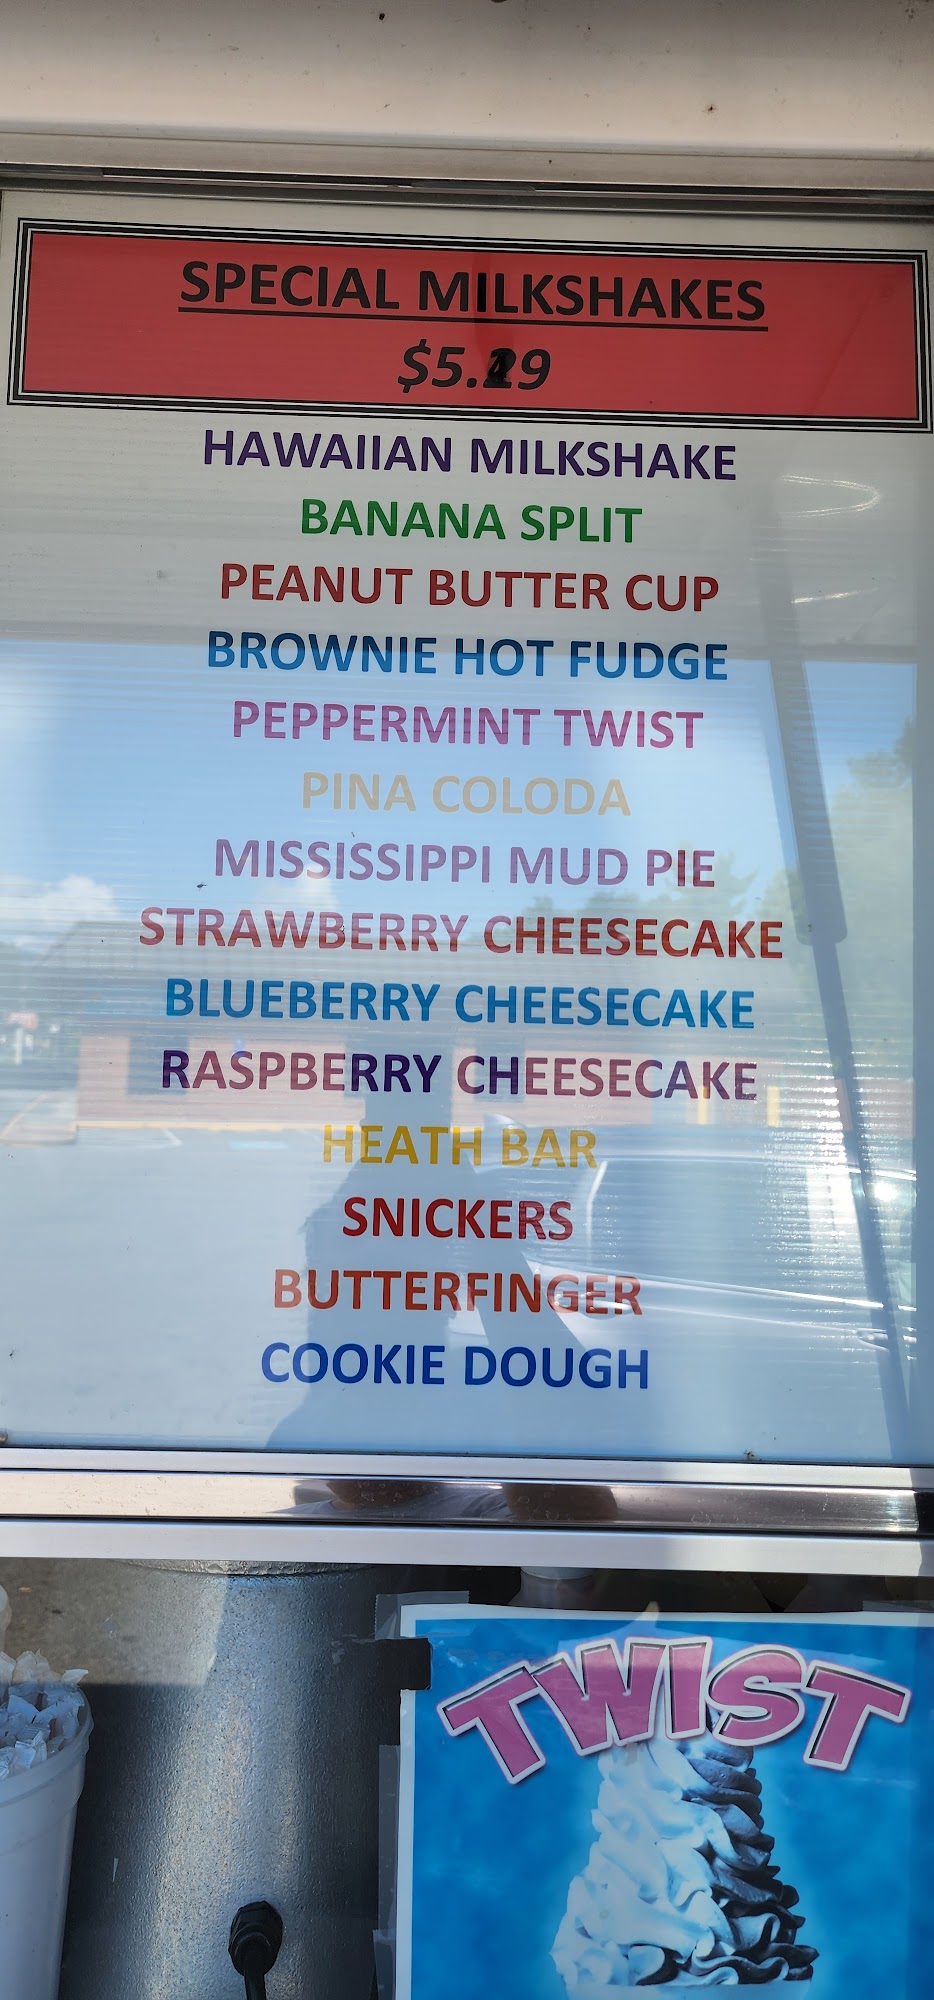 SPECIAL MILKSHAKES
HAWAIIAN MILKSHAKE
BANANA SPLIT
PEANUT BUTTER CUP
BROWNIE HOT FUDGE
PEPPERMINT TWIST
PINA COLODA
MISSISSIPPI MUD PIE
STRAWBERRY CHEESECAKE
BLUEBERRY CHEESECAKE
RASPBERRY CHEESECAKE
HEATH BAR
SNICKERS
BUTTERFINGER
COOKIE DOUGH
TWIST